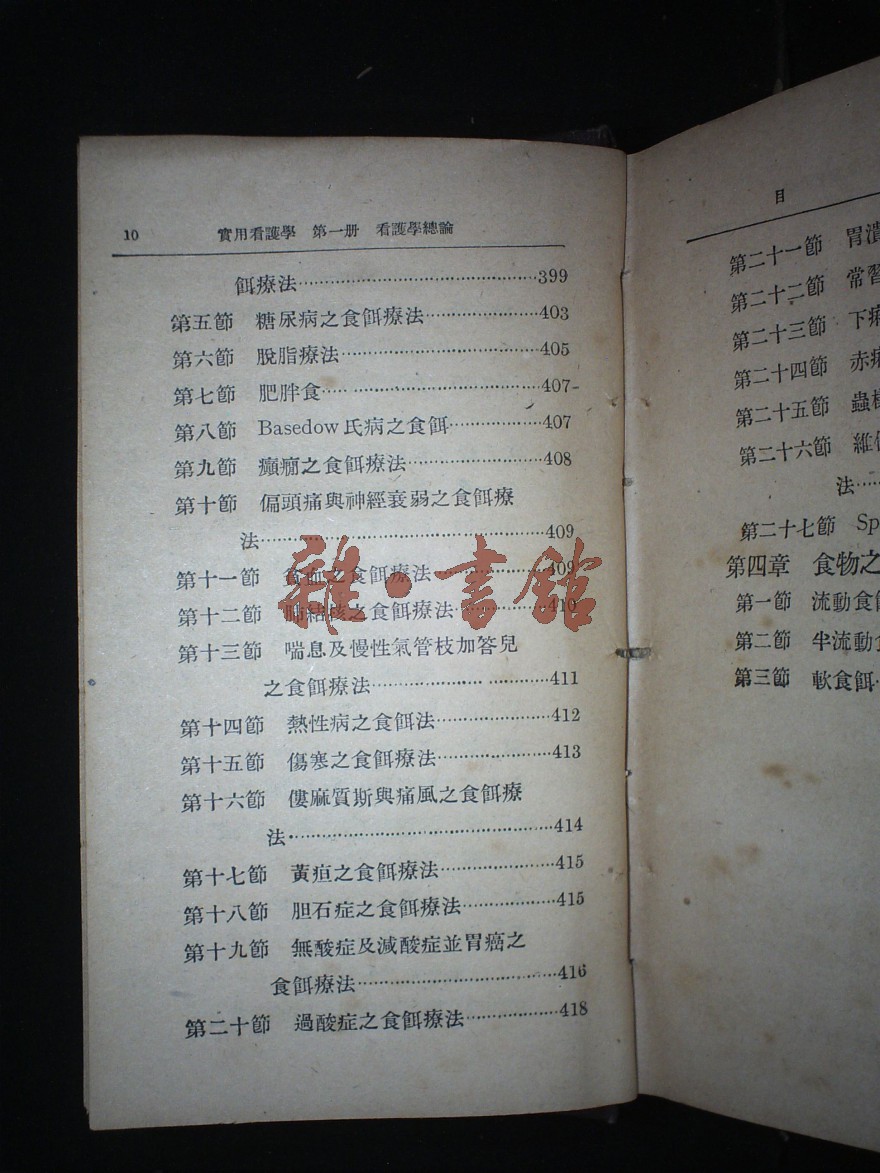 10 實用看護學 第一册 看護學總論
餌療法……399
第五節 糖尿病之食餌療法……403
第六節 脫脂療法……405
第七節 肥胖食……407
第八節 Basedow氏病之食餌……407
第九節 癲癇之食餌療法……408
第十節 偏頭痛與神經衰弱之食餌療
法……409
第十一節 貧血之食餌療法……409
第十二節 肺結核之食餌療法……410
第十三節 喘息及慢性氣管枝加答兒
之食餌療法……411
第十四節 熱性病之食餌法……412
第十五節 傷寒之食餌療法……413
第十六節 僂麻質斯與痛風之食餌療
法……414
第十七節 黃疸之食餌療法……415
第十八節 胆石症之食餌療法……415
第十九節 無酸症及減酸症並胃癌之
食餌療法……416
第二十節 過酸症之食餌療法……418
雜·書館
目
第二十一節 胃潰
第二十二節 常習
第二十三節 下痢
第二十四節 赤痢
第二十五節 蟲樣
第二十六節 維他
法……
第二十七節 Sp
第四章 食物之
第一節 流動食餌
第二節 半流動食
第三節 軟食餌